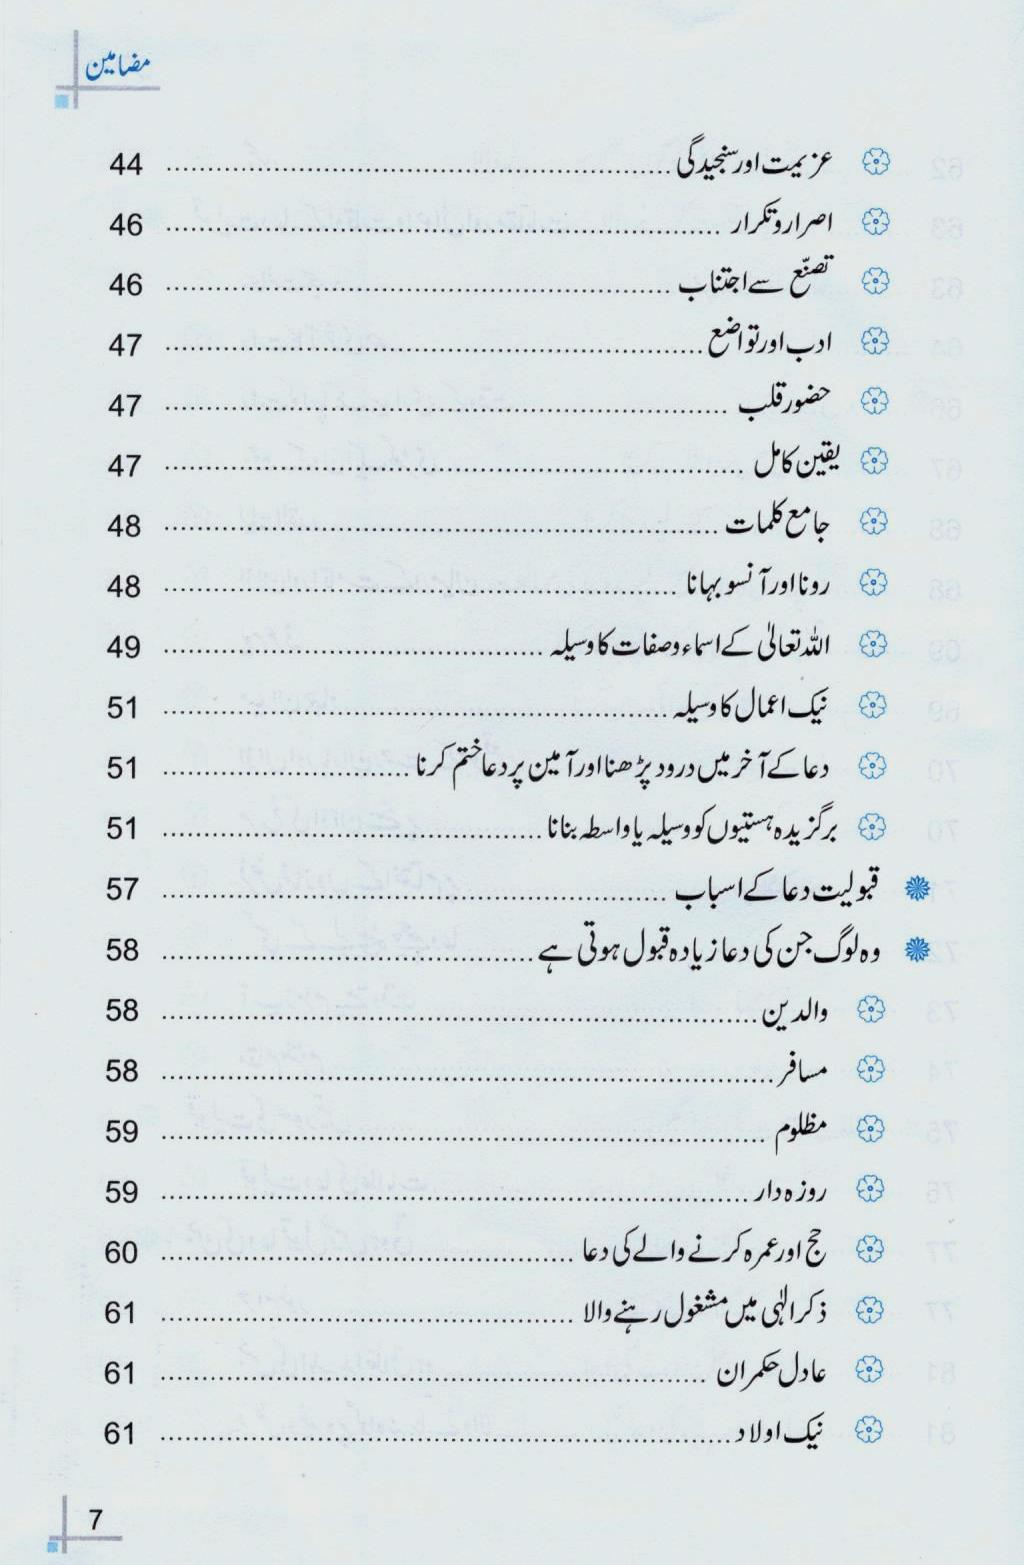 مضامین
عزیمت اور سنجیدگی ........ 44
اصرار و تکرار ........ 46
تصنّع سے اجتناب ........ 46
ادب اور تواضع ........ 47
حضور قلب ........ 47
یقین کامل ........ 47
جامع کلمات ........ 48
رونا اور آنسو بہانا ........ 48
اللہ تعالیٰ کے اسماء و صفات کا وسیلہ ........ 49
نیک اعمال کا وسیلہ ........ 51
دعا کے آخر میں درود پڑھنا اور آمین پر دعا ختم کرنا ........ 51
برگزیدہ ہستیوں کو وسیلہ یا واسطہ بنانا ........ 51
قبولیت دعا کے اسباب ........ 57
وہ لوگ جن کی دعا زیادہ قبول ہوتی ہے ........ 58
والدین ........ 58
مسافر ........ 58
مظلوم ........ 59
روزہ دار ........ 59
حج اور عمرہ کرنے والے کی دعا ........ 60
ذکر الٰہی میں مشغول رہنے والا ........ 61
عادل حکمران ........ 61
نیک اولاد ........ 61
7